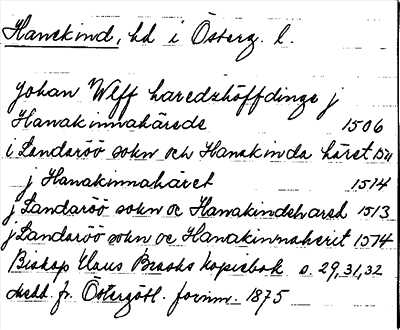 Hanekind, hd i Österg. l.
Johan Weff haredzhöffdinge j
Hanakinnahärede 1506
i Landaröö sokn och Hanakinda häret 1511
j Hanakinnahäret 1514
j Landaröö sokn oc Hanakindeharsd 1513
j Landaröö sokn oc Hanakinnaherit 1514
Biskop Claus Brasks kopiebok s. 29, 31, 32
Medd. fr. Östergötl. fornm. 1875